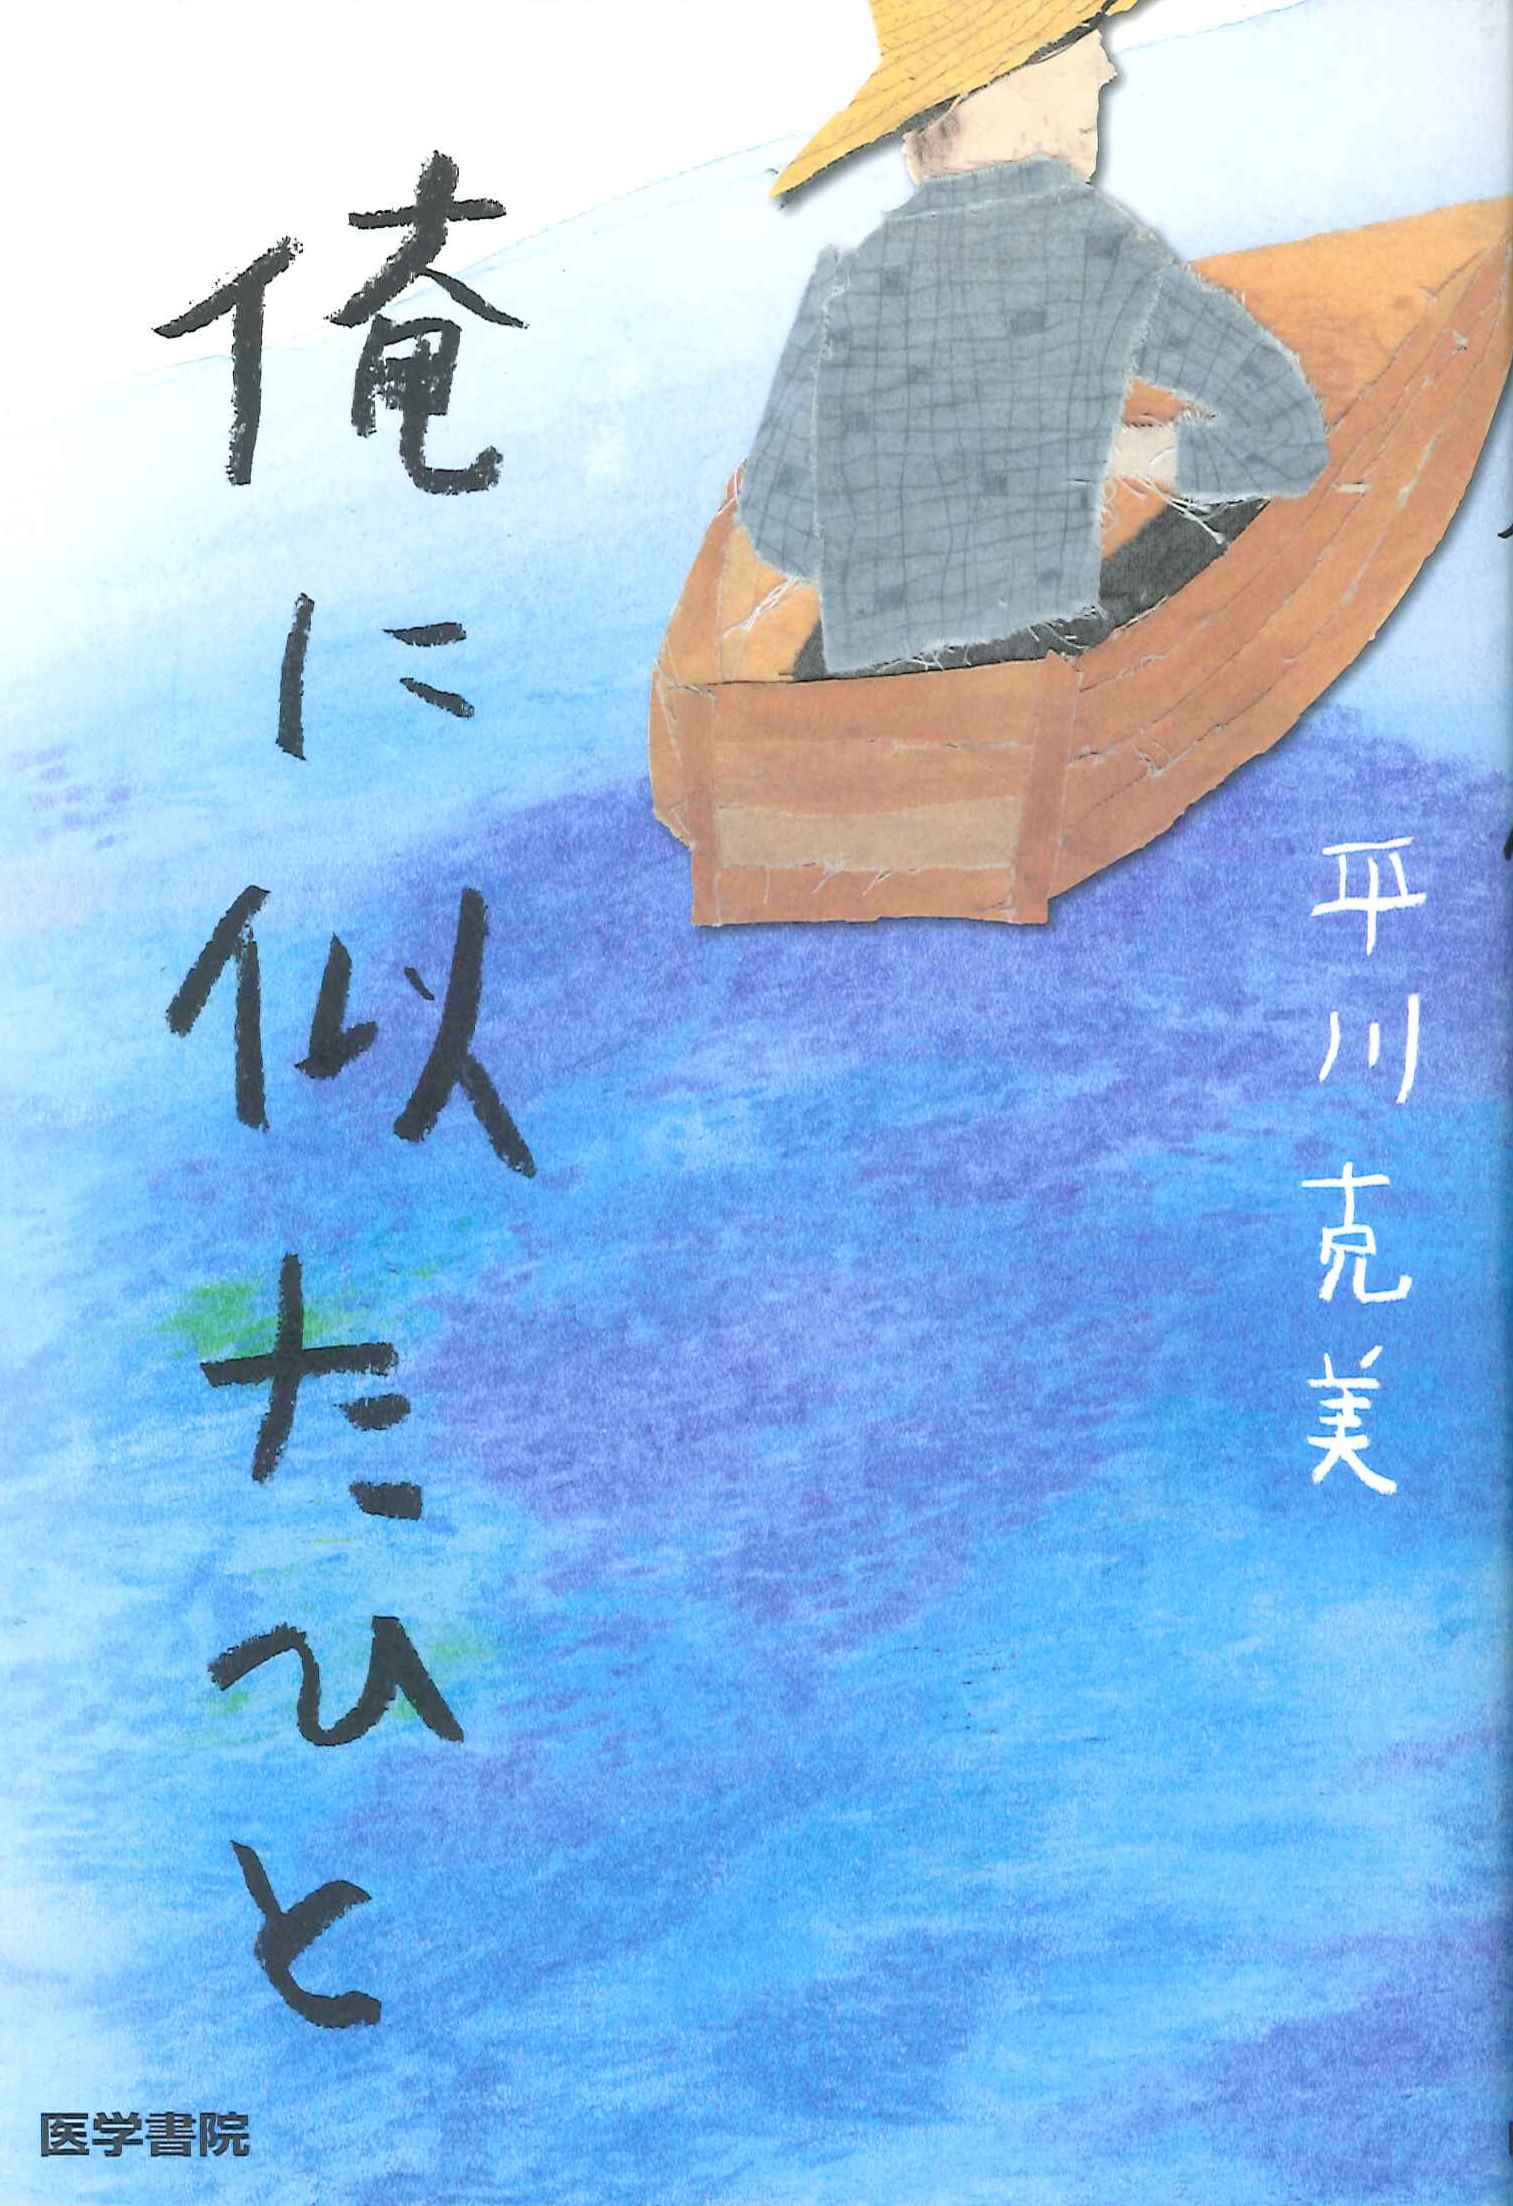 俺に似たひと
平川克美
医学書院